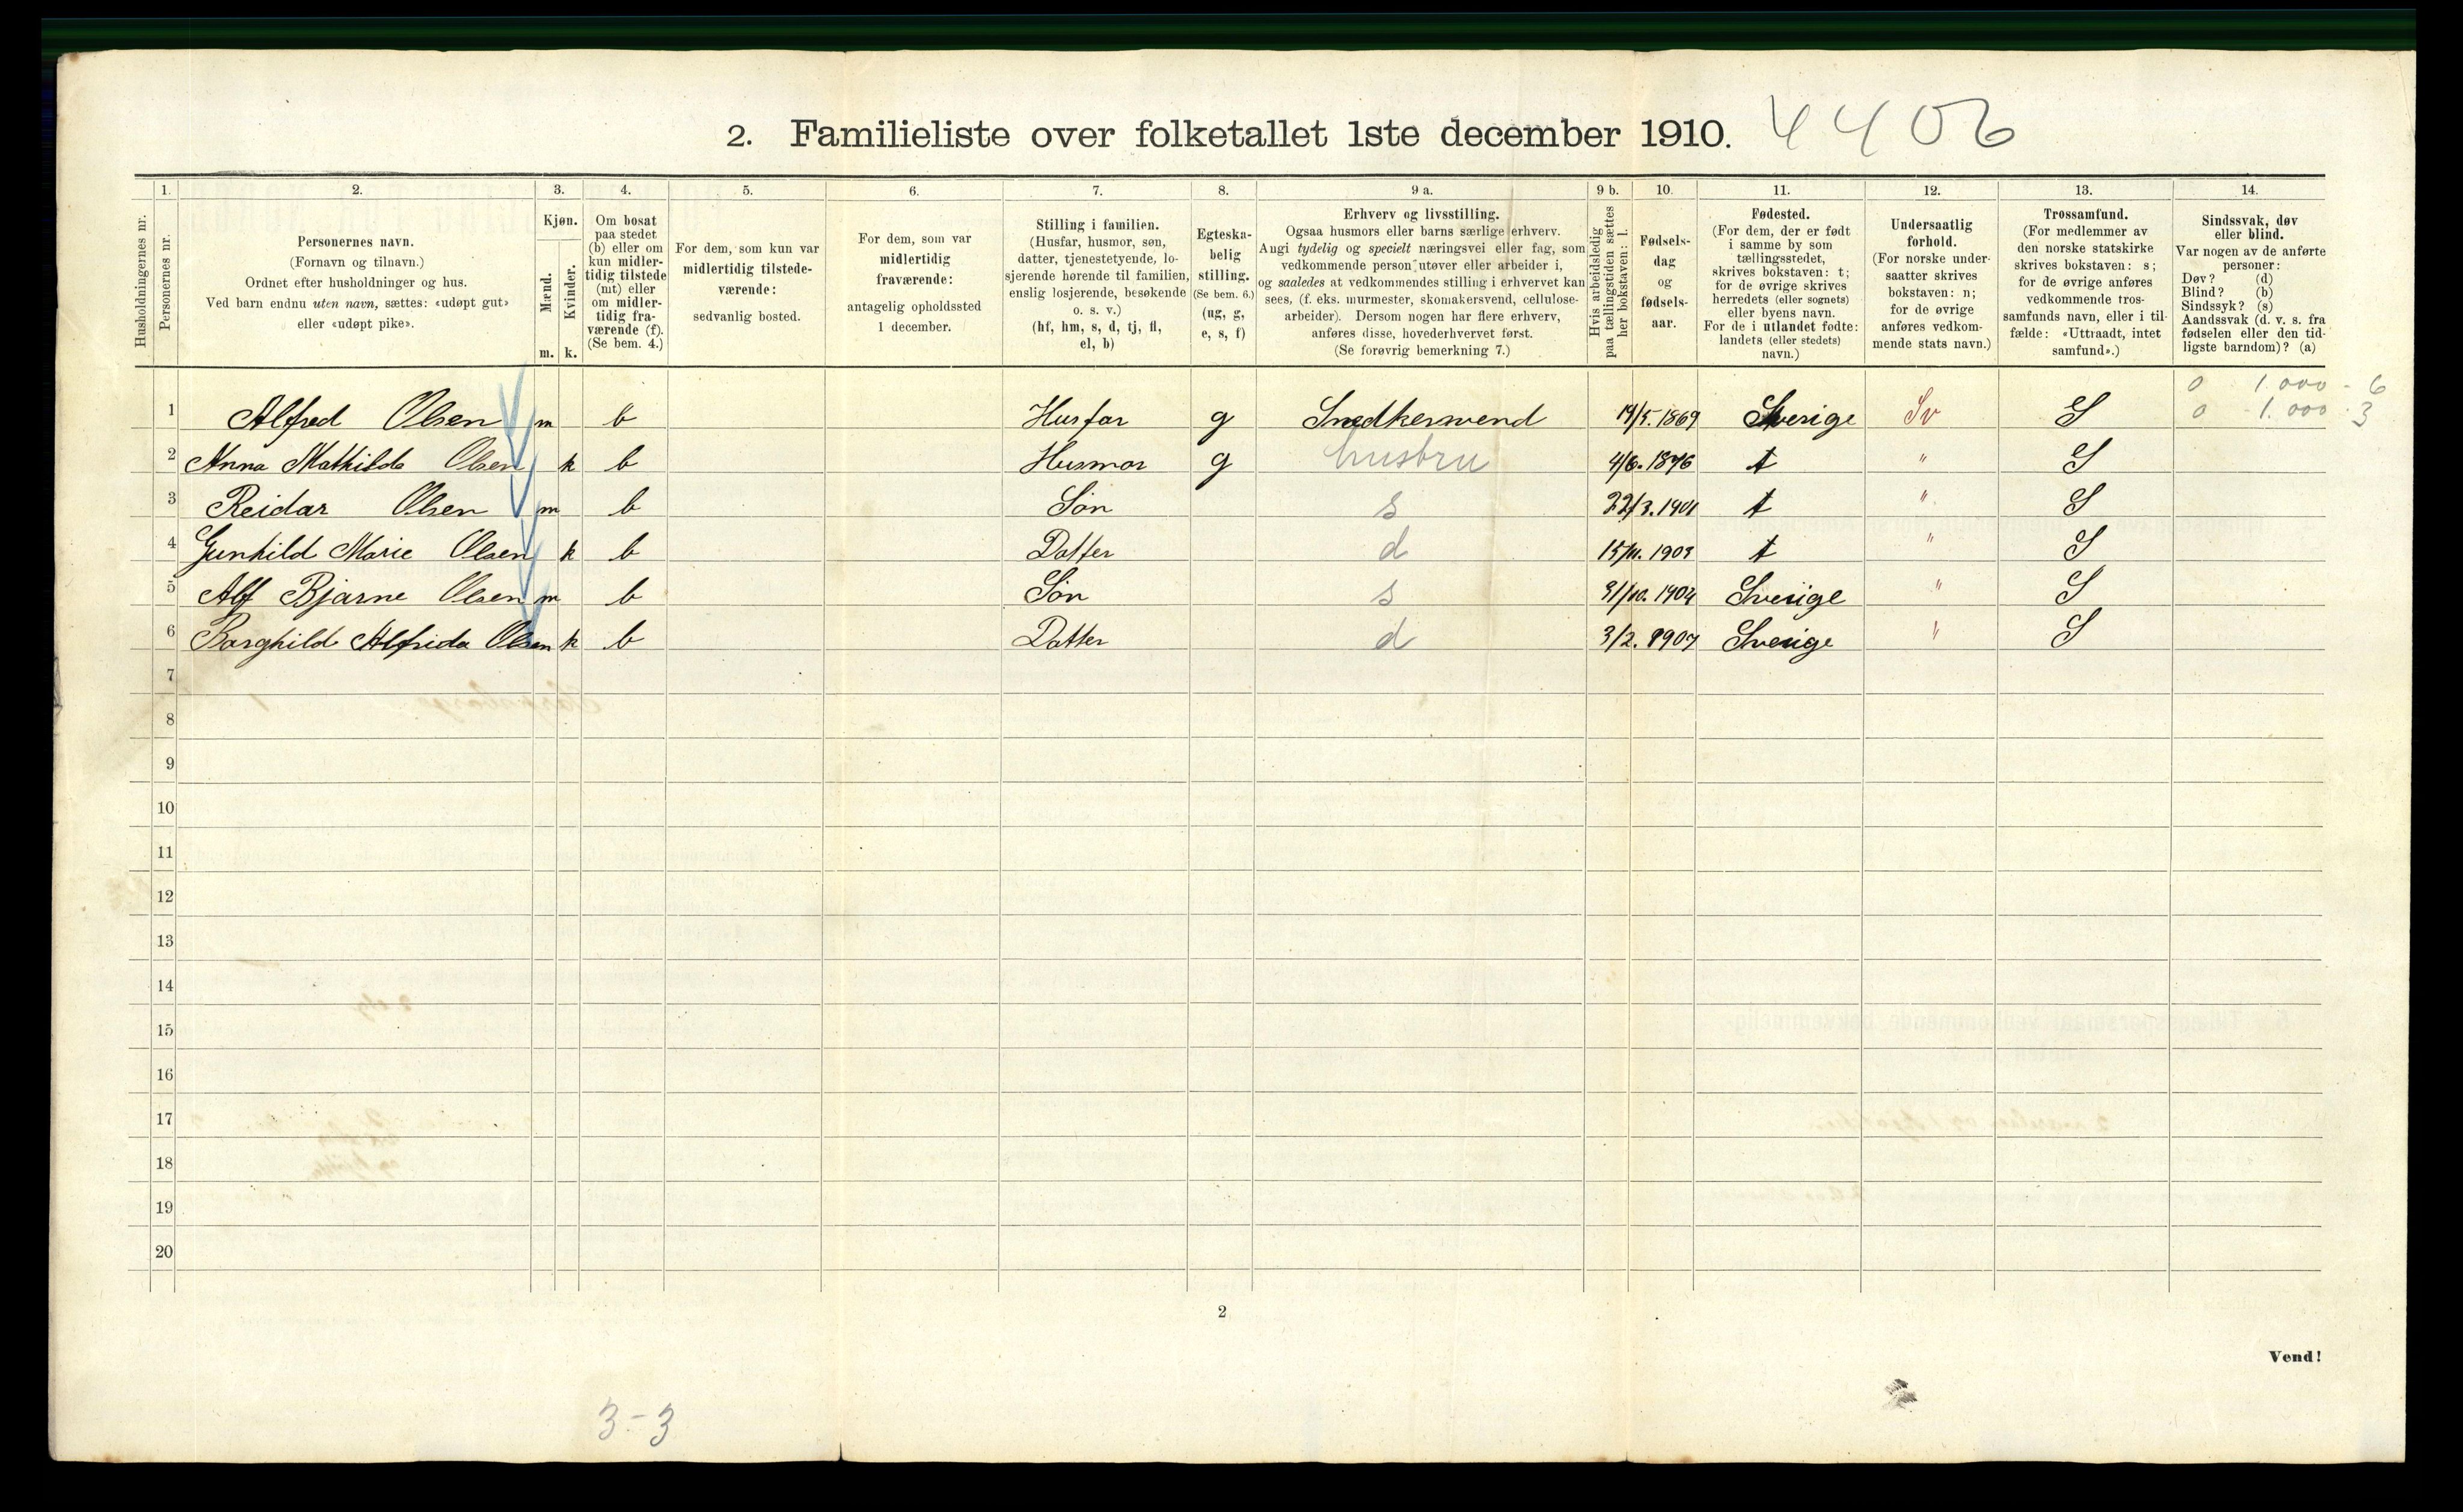 2. Familieliste over folketallet 1ste december 1910. 4406
1. 2. 3. 4. 5. 6. 7. 8. 9 a. 9 b. 10. 11. 12. 13. 14.
Husholdningernes nr.
Personernes nr.
Personernes navn.
(Fornavn og tilnavn.)
Ordnet efter husholdninger og hus.
Ved barn endnu uten navn, sættes: «udøpt gut»
eller «udøpt pike».
Kjøn.
Mænd.
Kvinder.
m. k.
Om bosat
paa stedet
(b) eller om
kun midler-
tidig tilstede
(mt) eller
om midler-
tidig fra-
værende (f).
(Se bem. 4.)
For dem, som kun var
midlertidig tilstede-
værende:
sedvanlig bosted.
For dem, som var
midlertidig
fraværende:
antagelig opholdssted
1 december.
Stilling i familien.
(Husfar, husmor, søn,
datter, tjenestetyende, lo-
sjerende hørende til familien,
enslig losjerende, besøkende
o. s. v.)
(hf, hm, s, d, tj, fl,
el, b)
Egteska-
belig
stilling.
(Se bem. 6.)
(ug, g,
e, s, f)
Erhverv og livsstilling.
Ogsaa husmors eller barns særlige erhverv.
Angi tydelig og specielt næringsvei eller fag, som
vedkommende person utøver eller arbeider i,
og saaledes at vedkommendes stilling i erhvervet kan
sees, (f. eks. murmester, skomakersvend, cellulose-
arbeider). Dersom nogen har flere erhverv,
anføres disse, hovederhvervet først.
(Se forøvrig bemerkning 7.)
Hvis arbeidsledig
paa tællingstiden sættes
her bokstaven: l.
Fødsels-
dag
og
fødsels-
aar.
Fødested.
(For dem, der er født
i samme by som
tællingsstedet,
skrives bokstaven: t;
for de øvrige skrives
herredets (eller sognets)
eller byens navn.
For de i utlandet fødte:
landets (eller stedets)
navn.)
Undersaatlig
forhold.
(For norske under-
saatter skrives
bokstaven: n;
for de øvrige
anføres vedkom-
mende stats navn.)
Trossamfund.
(For medlemmer av
den norske statskirke
skrives bokstaven: s;
for de øvrige anføres
vedkommende tros-
samfunds navn, eller i til-
fælde: «Uttraadt, intet
samfund».)
Sindssvak, døv
eller blind.
Var nogen av de anførte
personer:
Døv? (d)
Blind? (b)
Sindssyk? (s)
Aandssvak (d. v. s. fra
fødselen eller den tid-
ligste barndom)? (a)
0 1.000 - 6
0 - 1.000 · 3
1 Alfred Olsen m b Husfar g Snedkersvend 19/5.1869 Sverige Sv S
2 Anna Mathilda Olsen k b Husmor g husbru 4/6.1876 t " S
3 Reidar Olsen m b Søn s 22/3.1901 t " S
4 Gunhild Marie Olsen k b Datter d 15/11.1903 t " S
5 Alf Bjarne Olsen m b Søn s 31/10.1904 Sverige " S
6 Borghild Alfrida Olsen k b Datter d 3/2.1907 Sverige " S
7
8
9
10
11
12
13
14
15
16
17
18
19
20
2
Vend!
3-3